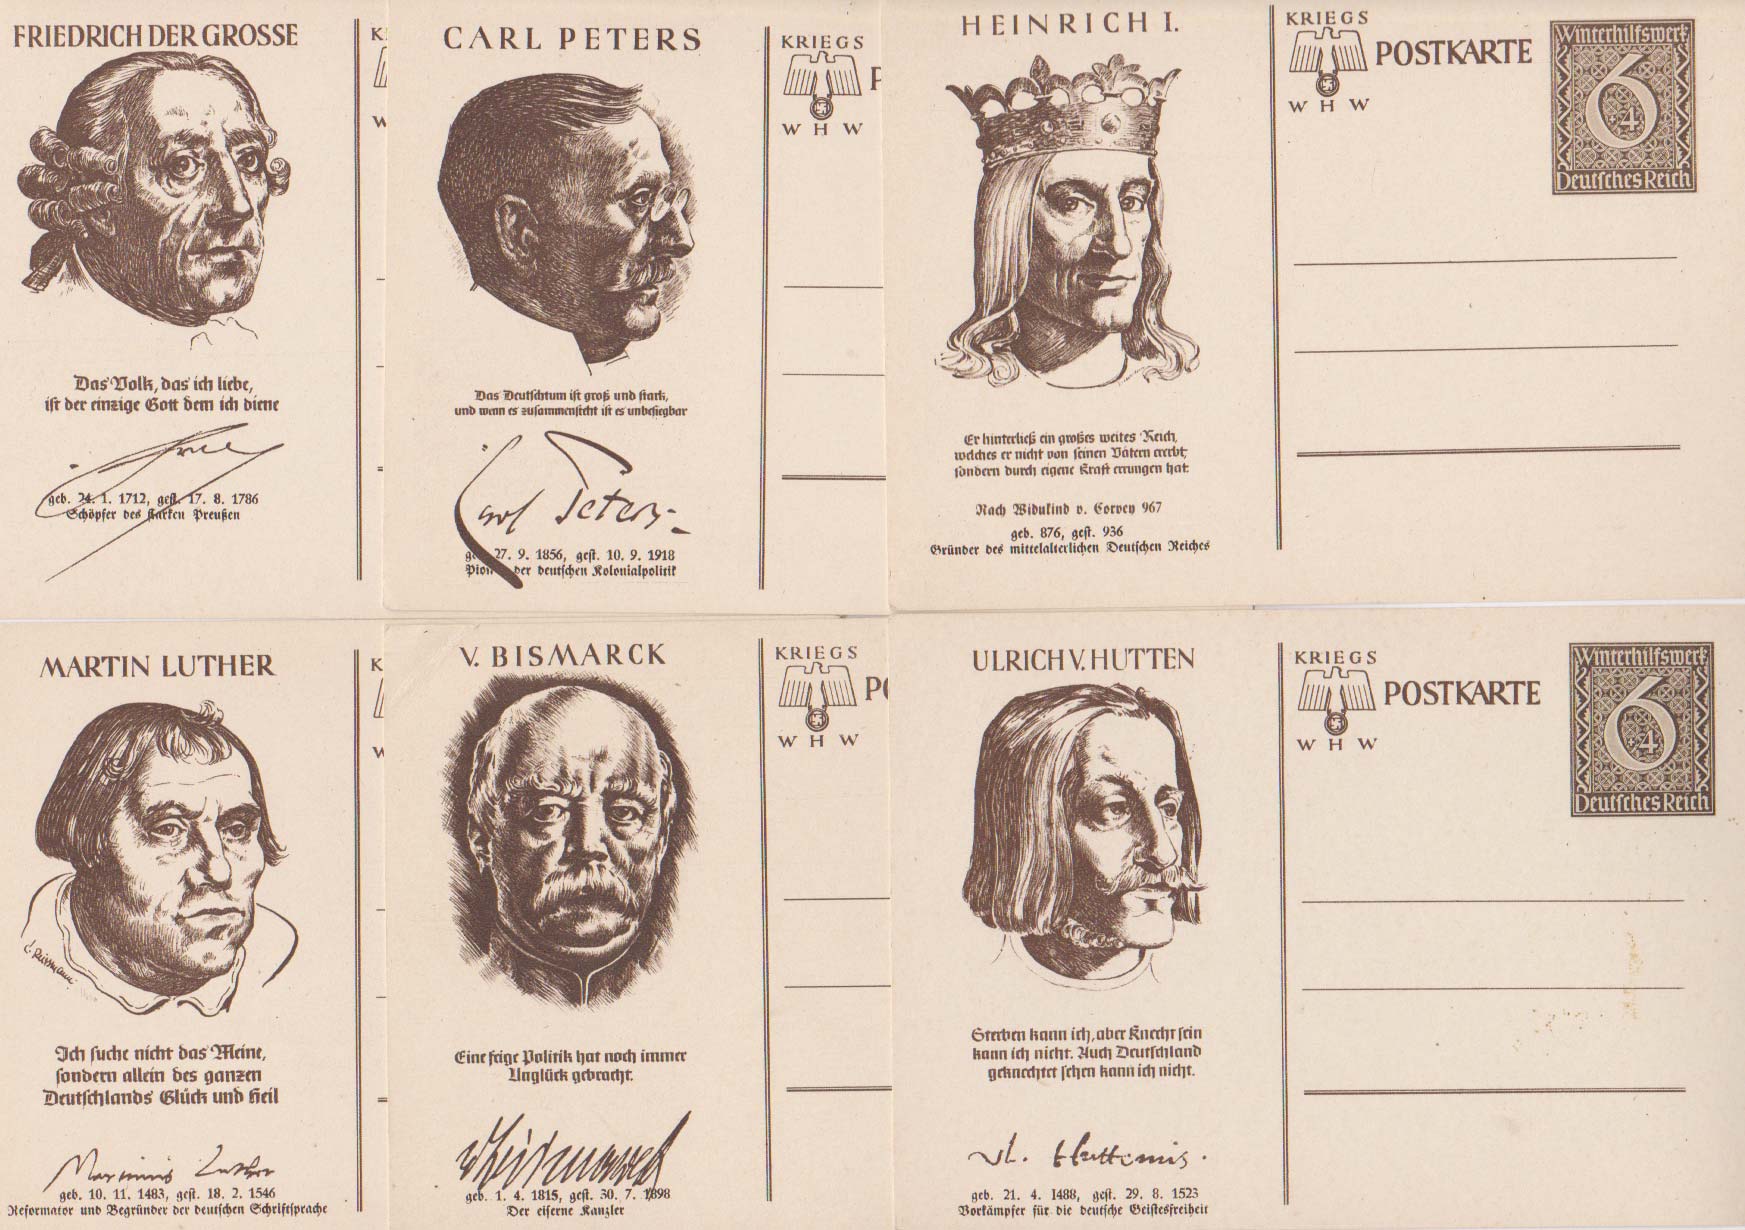 FRIEDRICH DER GROSSE
Das Volk, das ich liebe,
ist der einzige Gott dem ich diene
geb. 24. 1. 1712, gest. 17. 8. 1786
Schöpfer des starken Preußen
K
W
CARL PETERS
Das Deutschtum ist groß und stark,
und wenn es zusammensteht ist es unbesiegbar
Carl Peters
27. 9. 1856, gest. 10. 9. 1918
der deutschen Kolonialpolitik
KRIEGS
P
W H W
HEINRICH I.
Er hinterließ ein großes weites Reich,
welches er nicht von seinen Vätern ererbt,
sondern durch eigene Kraft errungen hat.
Nach Widukind v. Corvey 967
geb. 876, gest. 936
Gründer des mittelalterlichen Deutschen Reiches
KRIEGS
POSTKARTE
W H W
Winterhilfswerk
6
+4
Deutsches Reich
MARTIN LUTHER
Ich suche nicht das Meine,
sondern allein des ganzen
Deutschlands Glück und Heil
Martinus Luther
geb. 10. 11. 1483, gest. 18. 2. 1546
Reformator und Begründer der deutschen Schriftsprache
K
W
V. BISMARCK
Eine feige Politik hat noch immer
Unglück gebracht.
vBismarck
geb. 1. 4. 1815, gest. 30. 7. 1898
Der eiserne Kanzler
KRIEGS
PO
W H W
ULRICH V. HUTTEN
Sterben kann ich, aber Knecht sein
kann ich nicht. Auch Deutschland
geknechtet sehen kann ich nicht.
Vl. Huttenus.
geb. 21. 4. 1488, gest. 29. 8. 1523
Vorkämpfer für die deutsche Geistesfreiheit
KRIEGS
POSTKARTE
W H W
Winterhilfswerk
6
+4
Deutsches Reich